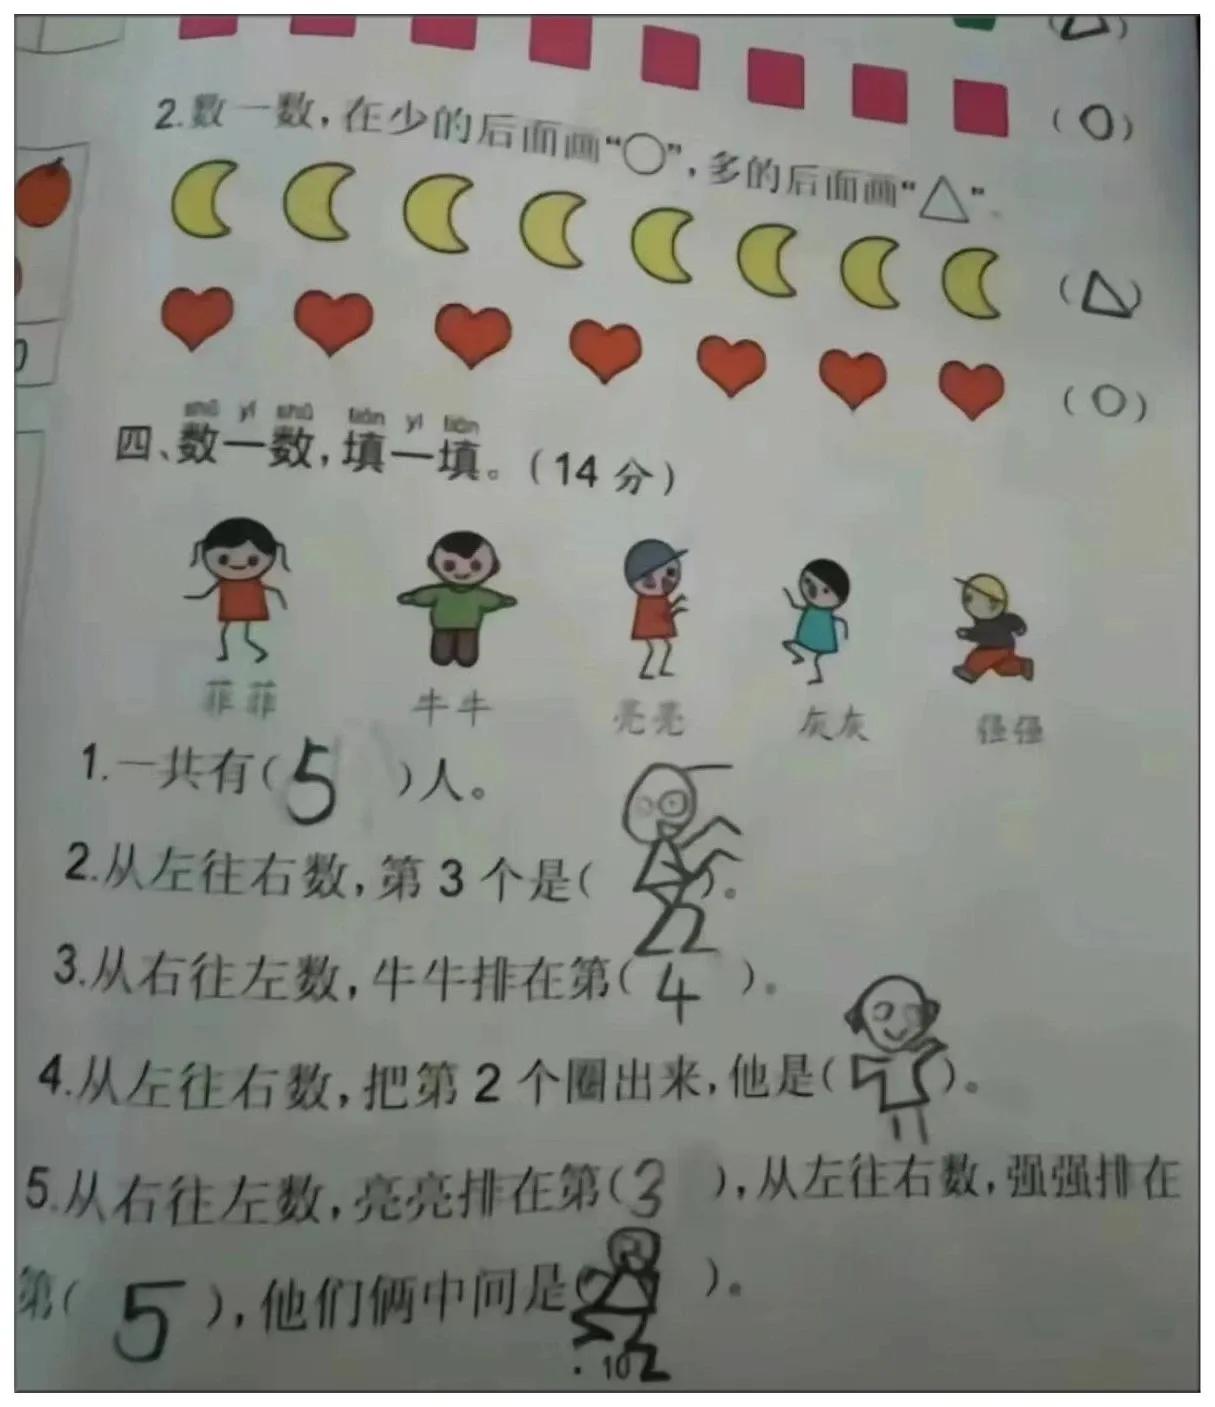 (△)
(○)
2.数一数，在少的后面画“○”，多的后面画“△”。
(△)
(○)
shǔ yī shǔ tián yī tián
四、数一数，填一填。（14 分）
菲菲 牛牛 亮亮 灰灰 强强
1.一共有(5)人。
2.从左往右数，第 3 个是( )。
3.从右往左数，牛牛排在第(4)。
4.从左往右数，把第 2 个圈出来，他是( )。
5.从右往左数，亮亮排在第(3)，从左往右数，强强排在
第(5)，他们俩中间是( )。
· 10